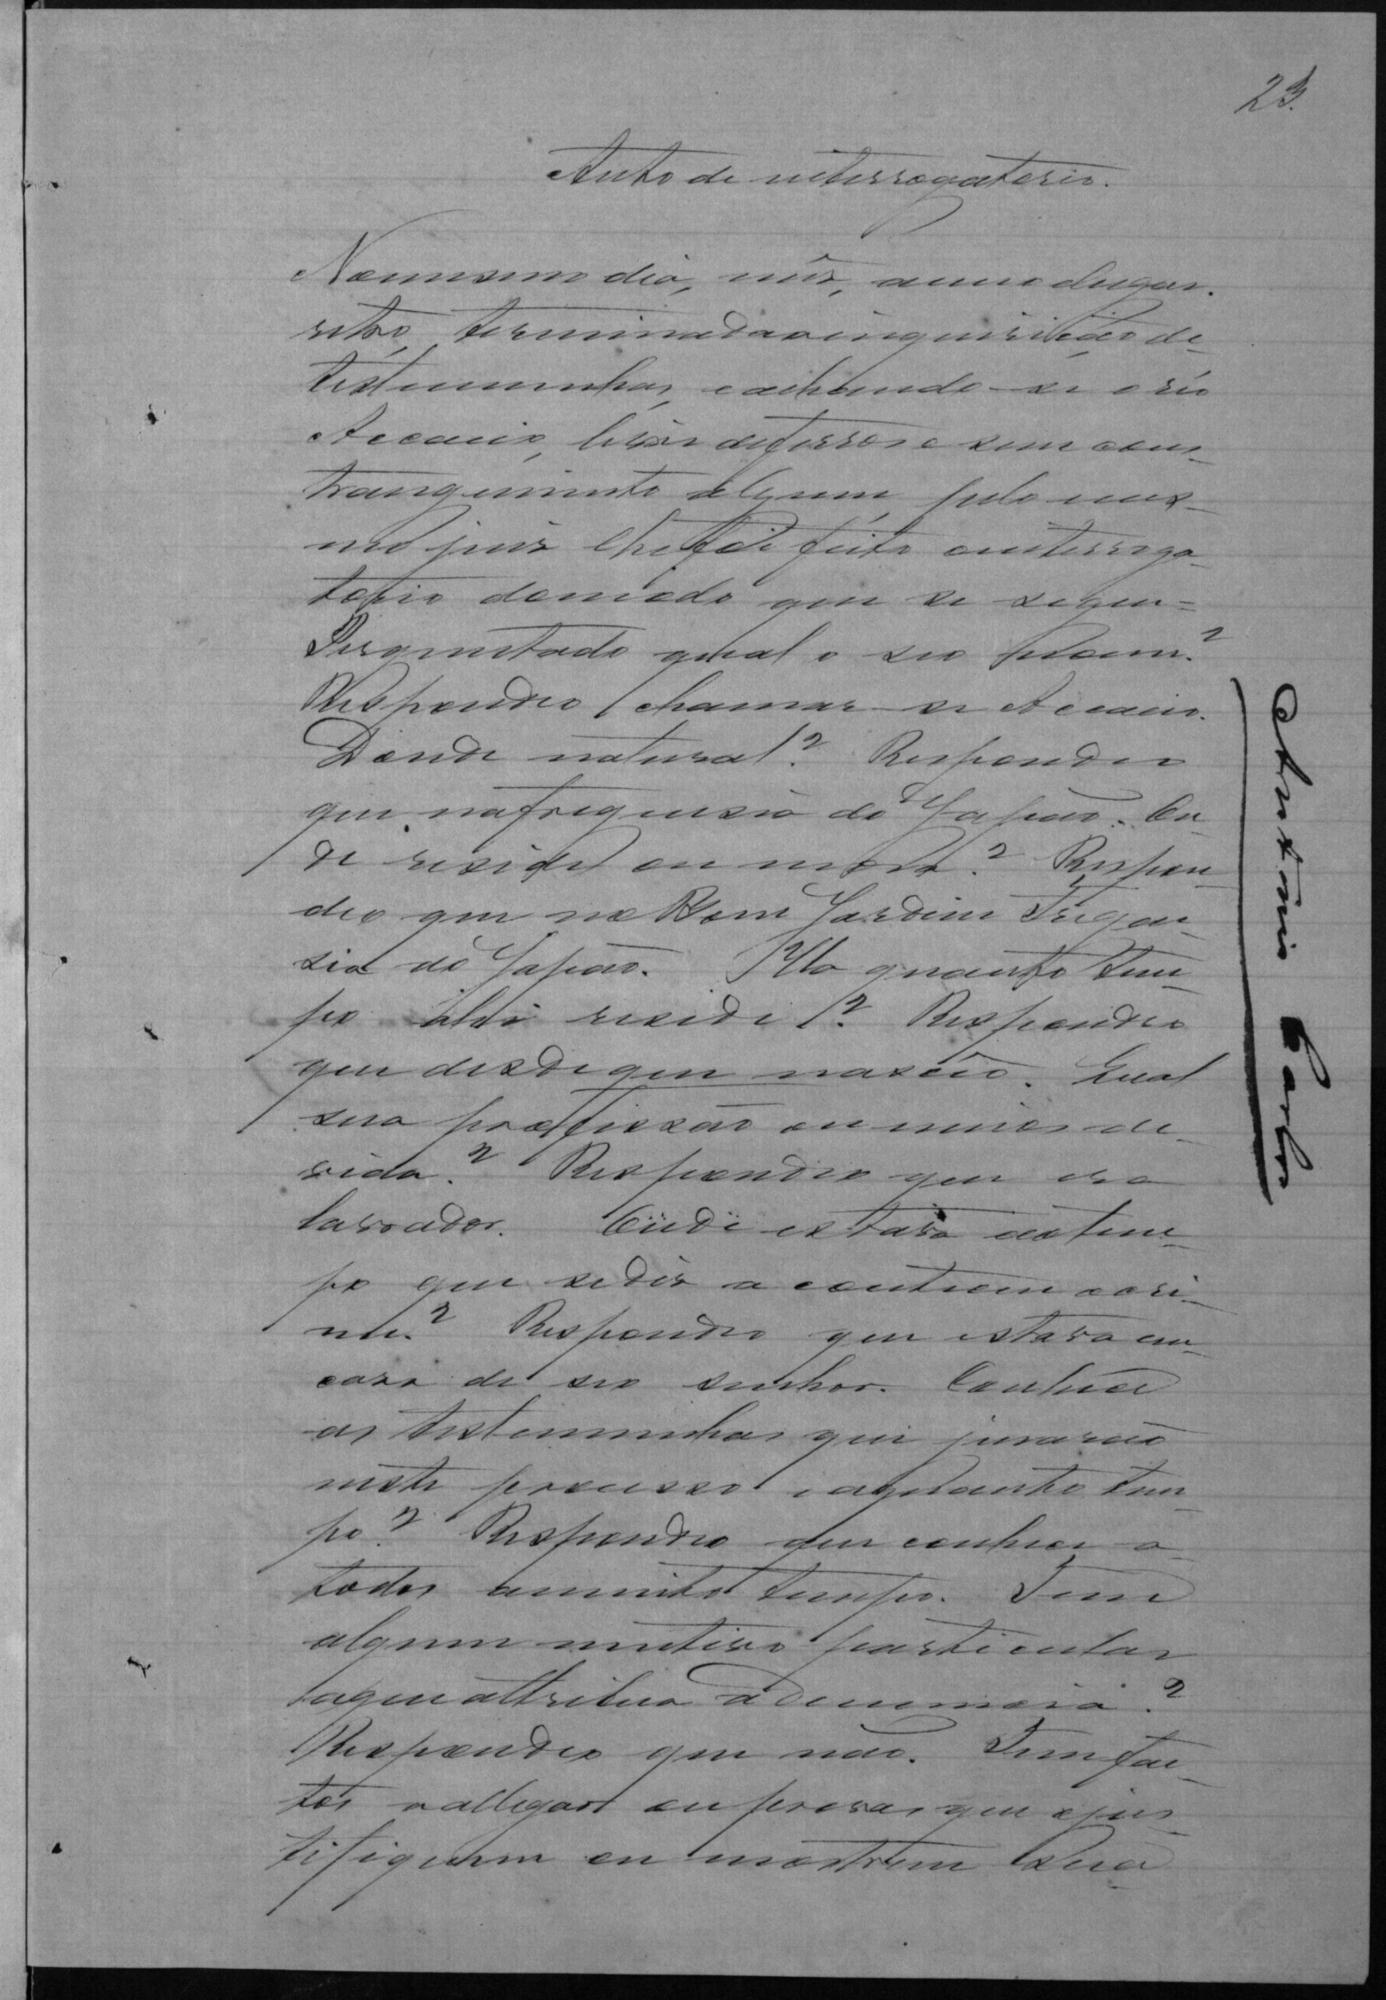 23.
Auto de interrogatorio.
No mesmo dia, mês, anno e lugar
retro, terminada a inquirição de
testemunhas, e achando-se o réo
Accacio, livre de ferros e sem cons-
trangimento algum, pelo mes-
mo juiz lhe foi feito o interroga-
torio do modo que se segue=
Perguntado qual o seo nome?
Respondeo chamar-se Accacio.
Donde natural? Respondeo
que na freguesia do Japão. On-
de reside ou mora? Respon-
deo que no Bom Jardim Fregue-
sia do Japão. Ha quanto tem-
po ahi reside? Respondeo
que desde que nasceo. Qual
sua profissão ou meios de
vida? Respondeo que era
lavrador. Onde estava ao tem-
po que se diz acontecem o cri-
me? Respondeo que estava em
casa de seo senhor. Conhece
as testemunhas que jurarão
neste processo e a quanto tem-
po? Respondeo que conhece a
todas a muito tempo. Tem
algum motivo particular
a que attribua a denuncia?
Respondeo que não. Tem fac-
tos a allegar ou provas que o jus-
tifiquem ou mostrem sua
Antonio Carlos